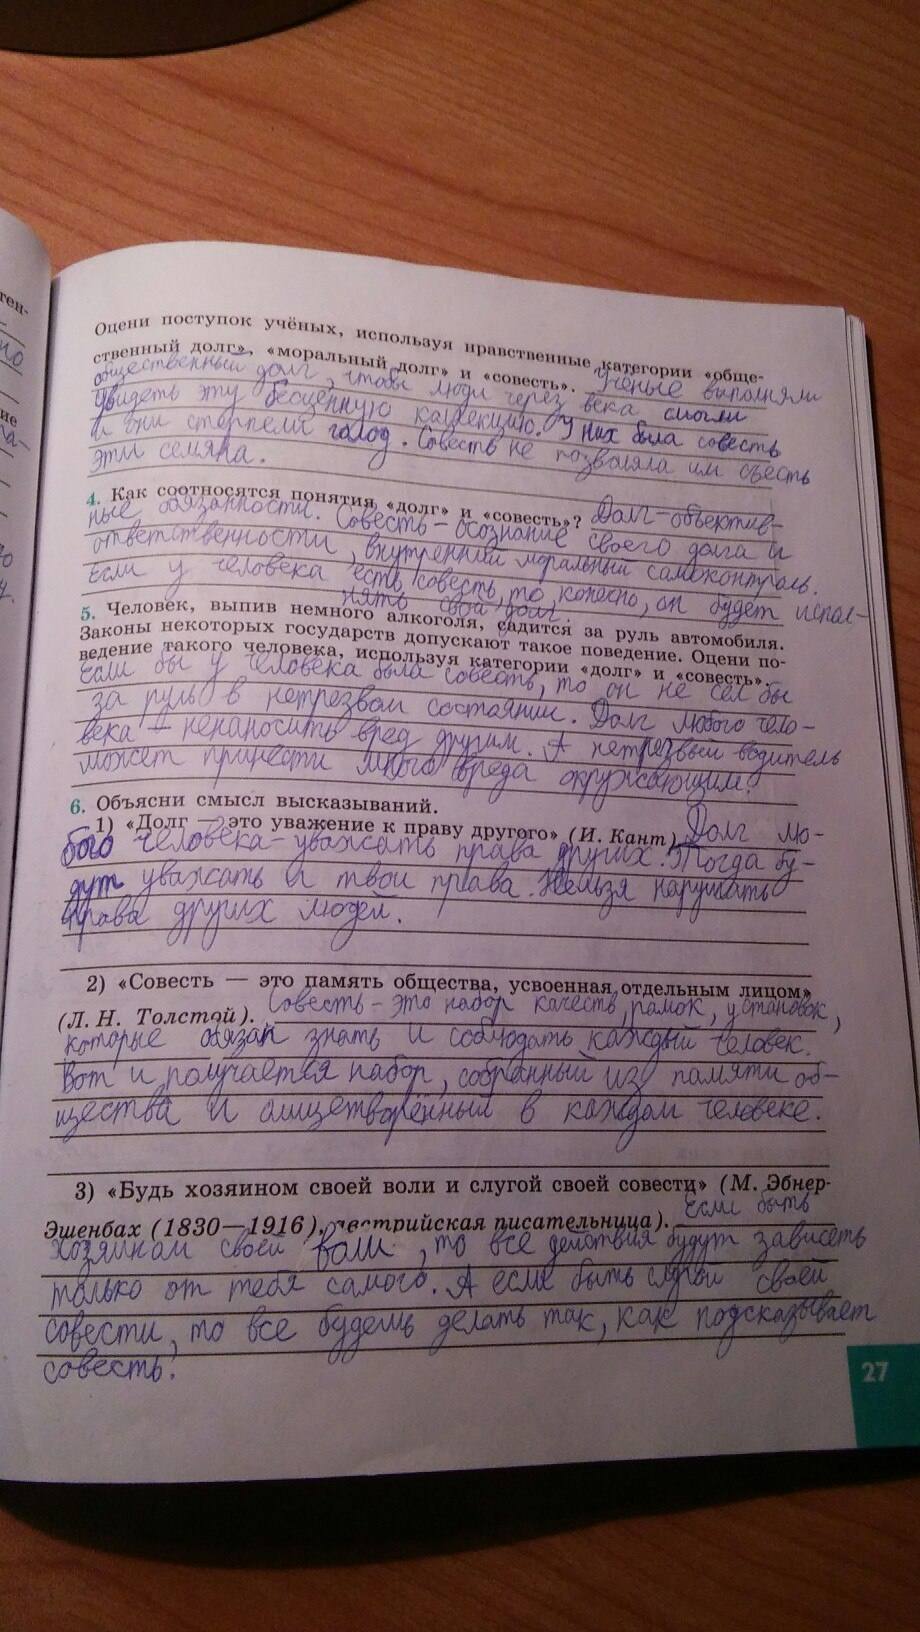 тен-
но
ие
па-
но
у.
Оцени поступок учёных, используя нравственные категории «обще-
ственный долг», «моральный долг» и «совесть». Учёные выполняли
общественный долг, чтобы люди через века смогли
увидеть эту бесценную коллекцию. У них была совесть
и они стерпели голод. Совесть не позволяла им съесть
эти семяна.
4. Как соотносятся понятия «долг» и «совесть»? Долг - объектив-
ные обязанности. Совесть - осознание своего долга и
ответственности, внутренний моральный самоконтроль.
Если у человека есть совесть, то, конечно, он будет испол-
нять свой долг.
5. Человек, выпив немного алкоголя, садится за руль автомобиля.
Законы некоторых государств допускают такое поведение. Оцени по-
ведение такого человека, используя категории «долг» и «совесть».
Если бы у человека была совесть, то он не сел бы
за руль в нетрезвом состоянии. Долг любого чело-
века - ненаносить вред другим. А нетрезвый водитель
может принести много вреда окружающим.
6. Объясни смысл высказываний.
1) «Долг — это уважение к праву другого» (И. Кант). Долг лю-
бого человека - уважать права других. Тогда бу-
дут уважать и твои права. Нельзя нарушать
права других людей.
2) «Совесть — это память общества, усвоенная отдельным лицом»
(Л. Н. Толстой). Совесть - это набор качеств, рамок, установок,
которые обязан знать и соблюдать каждый человек.
Вот и получается набор, собранный из памяти об-
щества и олицетворённый в каждом человеке.
3) «Будь хозяином своей воли и слугой своей совести» (М. Эбнер-
Эшенбах (1830—1916), австрийская писательница). Если быть
хозяином своей воли, то все действия будут зависеть
только от тебя самого. А если быть слугой своей
совести, то все будешь делать так, как подсказывает
совесть.
27